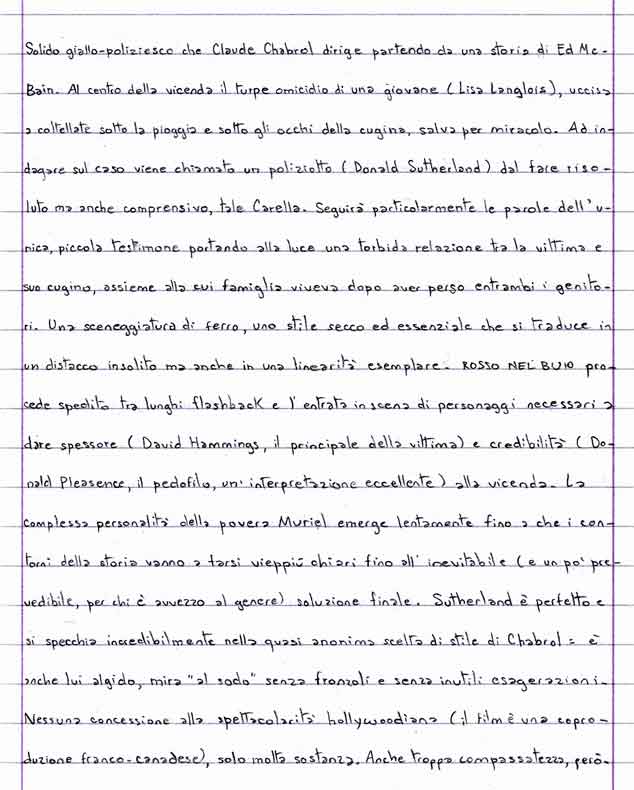 Solido giallo-poliziesco che Claude Chabrol dirige partendo da una storia di Ed Mc-
Bain. Al centro della vicenda il turpe omicidio di una giovane (Lisa Langlois), uccisa
a coltellate sotto la pioggia e sotto gli occhi della cugina, salva per miracolo. Ad in-
dagare sul caso viene chiamato un poliziotto (Donald Sutherland) dal fare riso-
luto ma anche comprensivo, tale Carella. Seguirà particolarmente le parole dell'u-
nica, piccola testimone portando alla luce una torbida relazione tra la vittima e
suo cugino, assieme alla cui famiglia viveva dopo aver perso entrambi i genito-
ri. Una sceneggiatura di ferro, uno stile secco ed essenziale che si traduce in
un distacco insolito ma anche in una linearità esemplare. ROSSO NEL BUIO pro-
cede spedito tra lunghi flashback e l'entrata in scena di personaggi necessari a
dare spessore (David Hammings, il principale della vittima) e credibilità (Do-
nald Pleasence, il pedofilo, un'interpretazione eccellente) alla vicenda. La
complessa personalità della povera Muriel emerge lentamente fino a che i con-
torni della storia vanno a farsi vieppiù chiari fino all'inevitabile (e un po' pre-
vedibile, per chi è avvezzo al genere) soluzione finale. Sutherland è perfetto e
si specchia incredibilmente nella quasi anonima scelta di stile di Chabrol: è
anche lui algido, mira "al sodo" senza fronzoli e senza inutili esagerazioni.
Nessuna concessione alla spettacolarità hollywoodiana (il film è una copro-
duzione franco-canadese), solo molta sostanza. Anche troppa compassatezza, però.